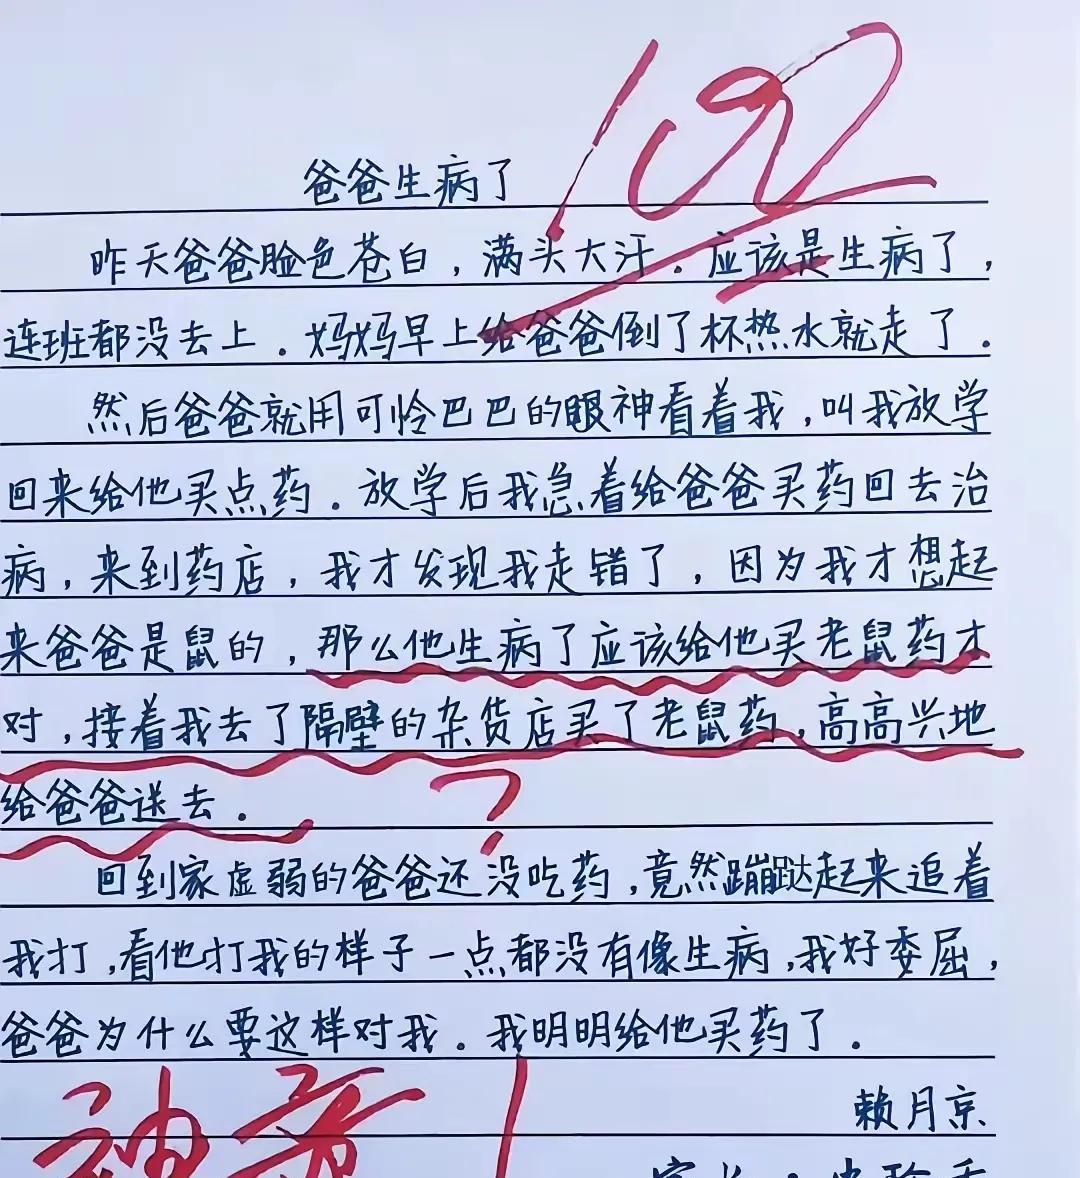 100
爸爸生病了
昨天爸爸脸色苍白，满头大汗。应该是生病了，
连班都没去上。妈妈早上给爸爸倒了杯热水就走了。
然后爸爸就用可怜巴巴的眼神看着我，叫我放学
回来给他买点药。放学后我急着给爸爸买药回去治
病，来到药店，我才发现我走错了，因为我才想起
来爸爸是鼠的，那么他生病了应该给他买老鼠药才
对，接着我去了隔壁的杂货店买了老鼠药，高高兴地
给爸爸送去。
?
回到家虚弱的爸爸还没吃药，竟然蹦跶起来追着
我打，看他打我的样子一点都没有像生病，我好委屈，
爸爸为什么要这样对我。我明明给他买药了。
赖月京